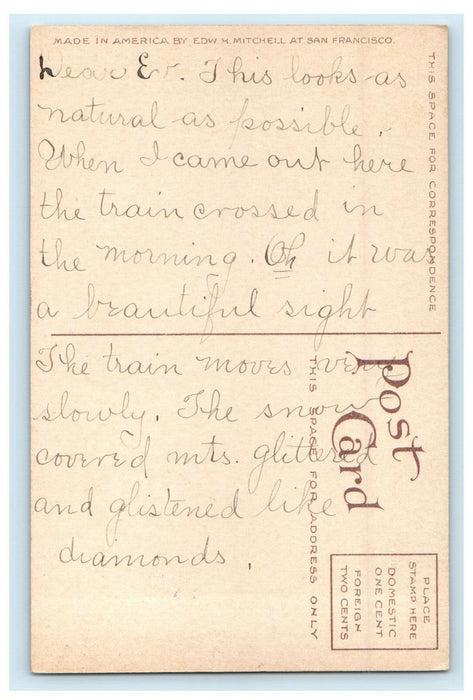 MADE IN AMERICA BY EDW. H. MITCHELL AT SAN FRANCISCO.
Dear Ev. This looks as
natural as possible.
When I came out here
the train crossed in
the morning. Oh it was
a beautiful sight
The train moves very
slowly. The snow
covered mts. glittered
and glistened like
diamonds.
THIS SPACE FOR CORRESPONDENCE
Post
Card
THIS SPACE FOR ADDRESS ONLY
PLACE
STAMP HERE
DOMESTIC
ONE CENT
FOREIGN
TWO CENTS